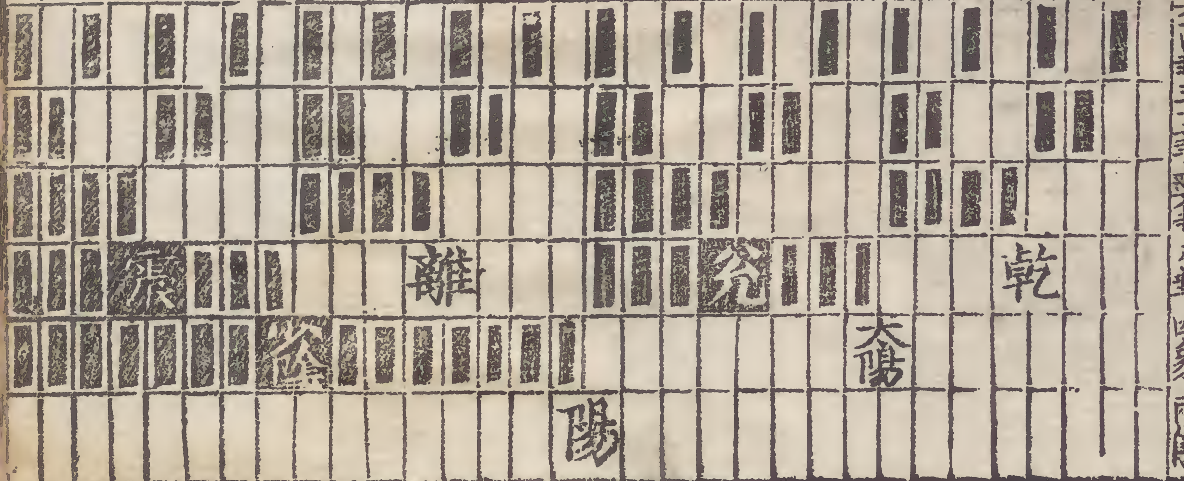 乾
兌
離
震
太陽
少陰
陽